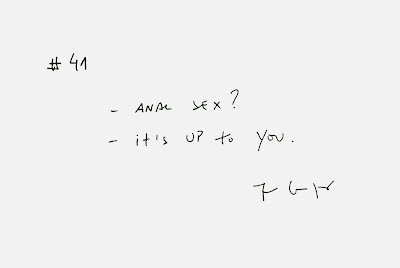 # 41
- ANAL SEX?
- it's UP to you.